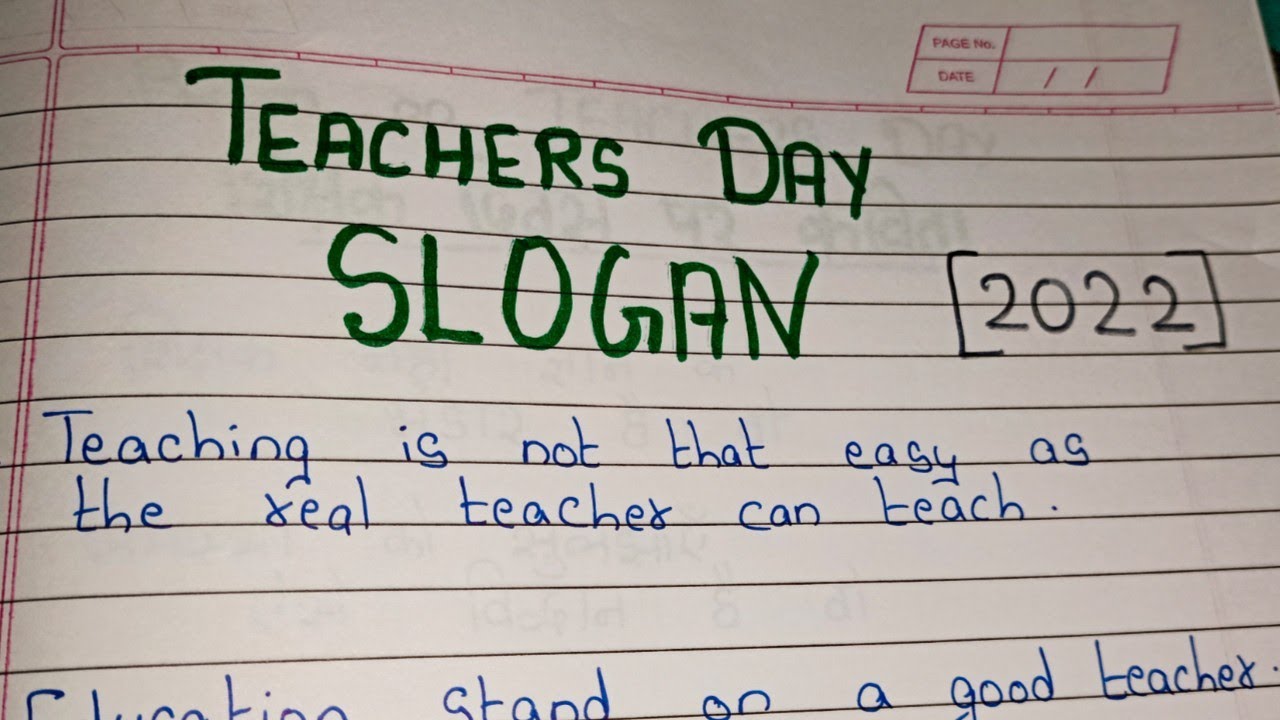 PAGE No.
DATE / /
TEACHERS DAY
SLOGAN [2022]
Teaching is not that easy as
the real teacher can teach.
Education stand on a good teacher.